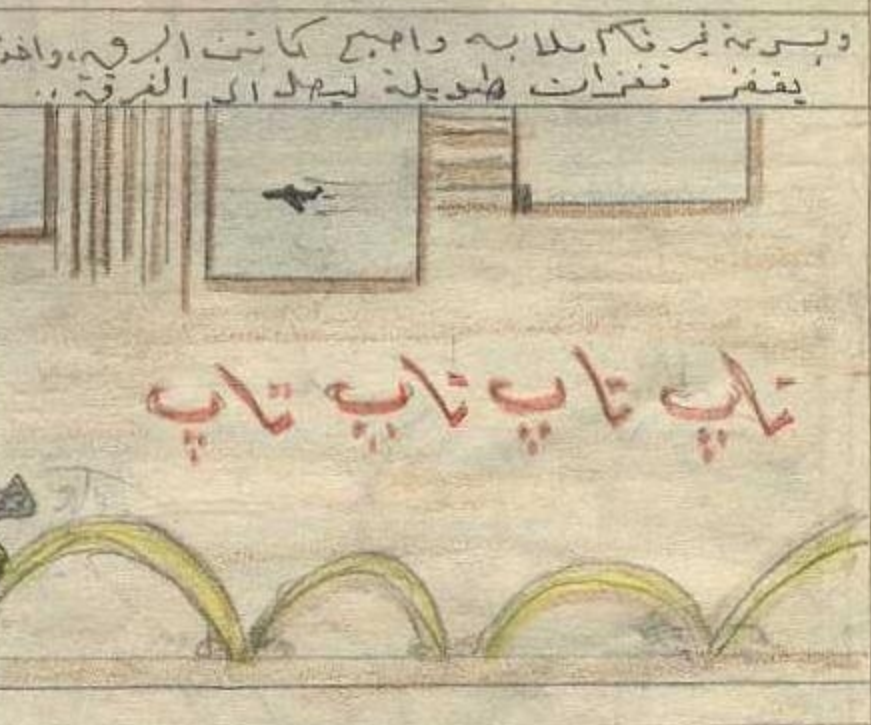 وبسرعة غير قاسم ملابسه واصبح كابتن البرق، واخذ
يقفز قفزات طويلة ليصل الى الغرفة ..
تاپ تاپ تاپ تاپ